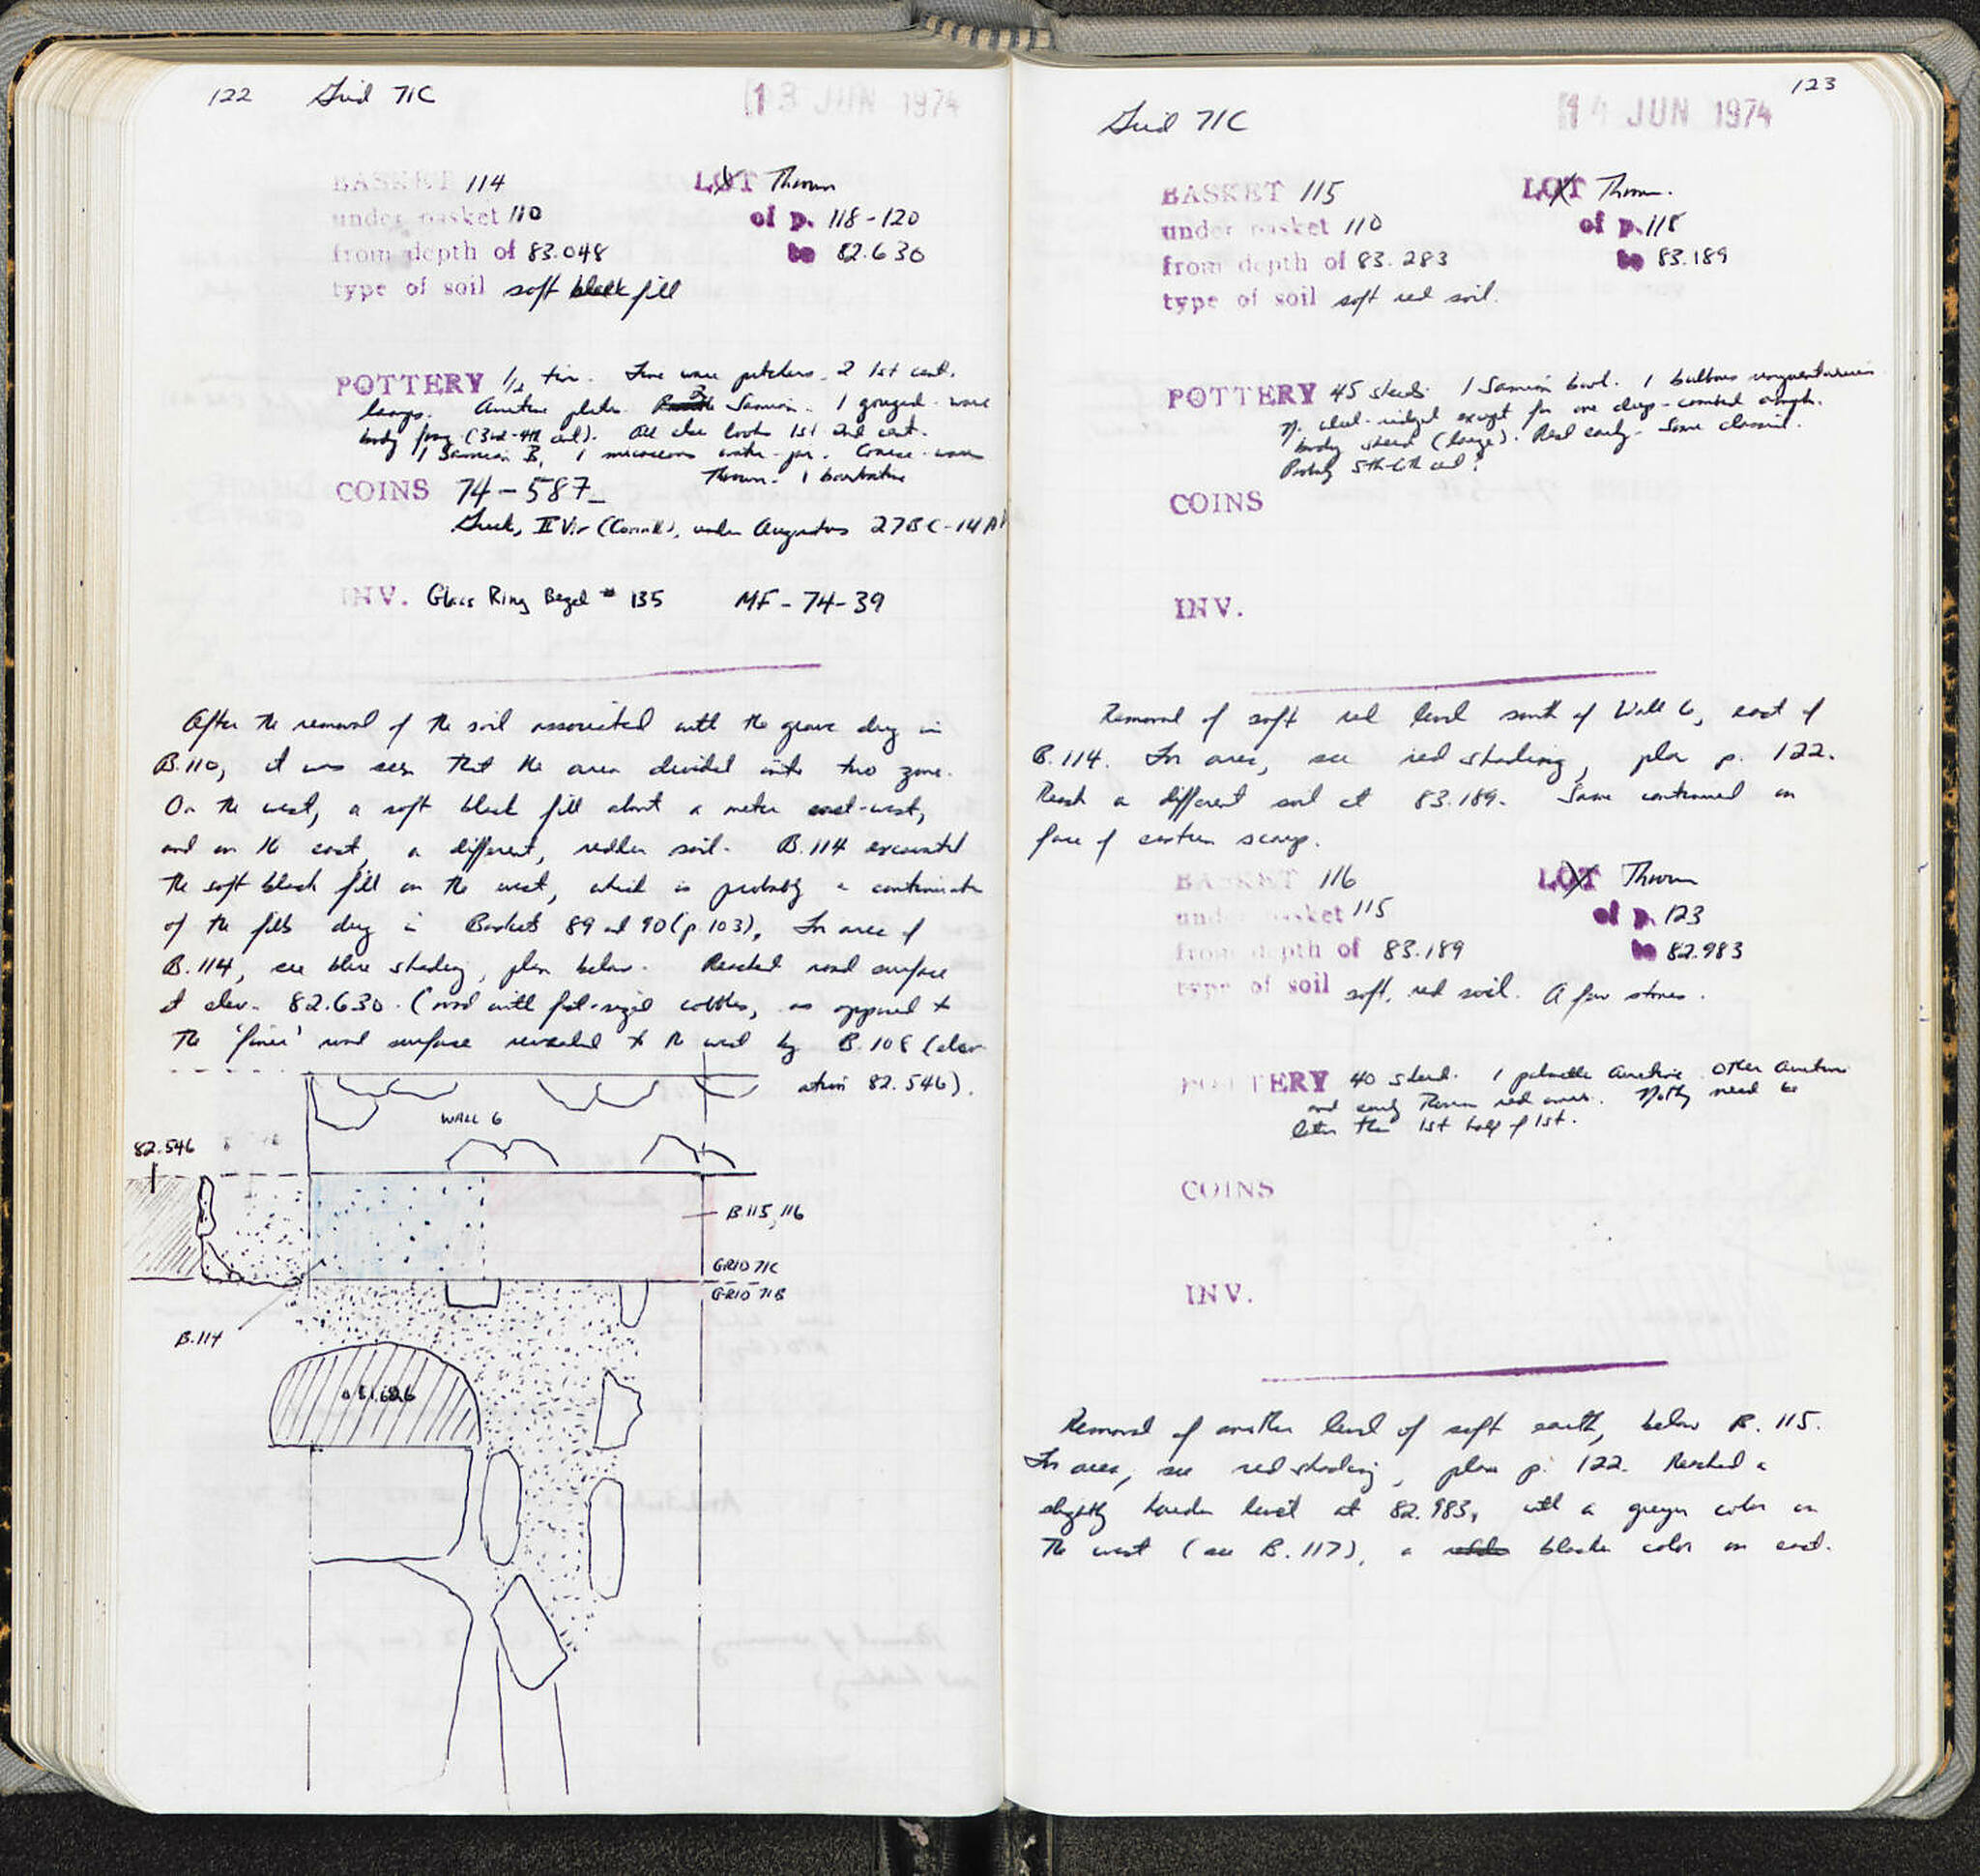 122 Grid 71C 13 JUN 1974
BASKET 114 LOT Thrown
under basket 110 of p. 118-120
from depth of 83.048 to 82.630
type of soil soft black fill
POTTERY 1/2 tin. Fine ware pitchers. 2 1st cent.
lamps. Arretine plate. 3 Samian. 1 gouged-ware
body frag (3rd-4th cent). All else looks 1st 2nd cent.
1 Samian B, 1 micaceous water-jar. Coarse-ware
Thrown. 1 barbotine
COINS 74-587
Greek, II Vir (Corinth), under Augustus 27BC-14A
INV. Glass Ring Bezel # 135 MF-74-39
After the removal of the soil associated with the grave dug in
B.110, it was seen that the area divided into two zone.
On the west, a soft black fill about a meter east-west,
and on the east, a different, redder soil. B.114 excavated
the soft black fill on the west, which is probably a continuation
of the fills dug in Baskets 89 and 90 (p.103). For area of
B.114, see blue shading, plan below. Reached road surface
at elev. 82.630. (road with fist-sized cobbles, as opposed to
the 'finer' road surface revealed to the west by B.108 (elev-
ation 82.546).
WALL 6
82.546
B.115, 116
GRID 71C
GRID 71B
B.114
123
Grid 71C 14 JUN 1974
BASKET 115 LOT Thrown.
under basket 110 of p. 118
from depth of 83.283 to 83.189
type of soil soft red soil.
POTTERY 45 sherds. 1 Samian bowl. 1 bulbous unguentarium
No wheel-ridged except for one deep-combed amph.
body sherd (large). Rest early. Some classical.
Probably 5th-6th cent?
COINS
INV.
Removal of soft red level south of Wall 6, east of
B.114. For area, see red shading, plan p. 122.
Reach a different soil at 83.189. Same continued in
face of eastern scarp.
BASKET 116 LOT Thrown
under basket 115 of p. 123
from depth of 83.189 to 82.983
type of soil soft, red soil. A few stones.
POTTERY 40 sherd. 1 palmette Arretine. Other Arretine
and early Roman red wares. Nothing need be
later than 1st half of 1st.
COINS
INV.
Removal of another level of soft earth, below B. 115.
For area, see red shading, plan p. 122. Reached a
slightly harder level at 82.983, with a greyer color on
the west (see B.117), a blacker color on east.